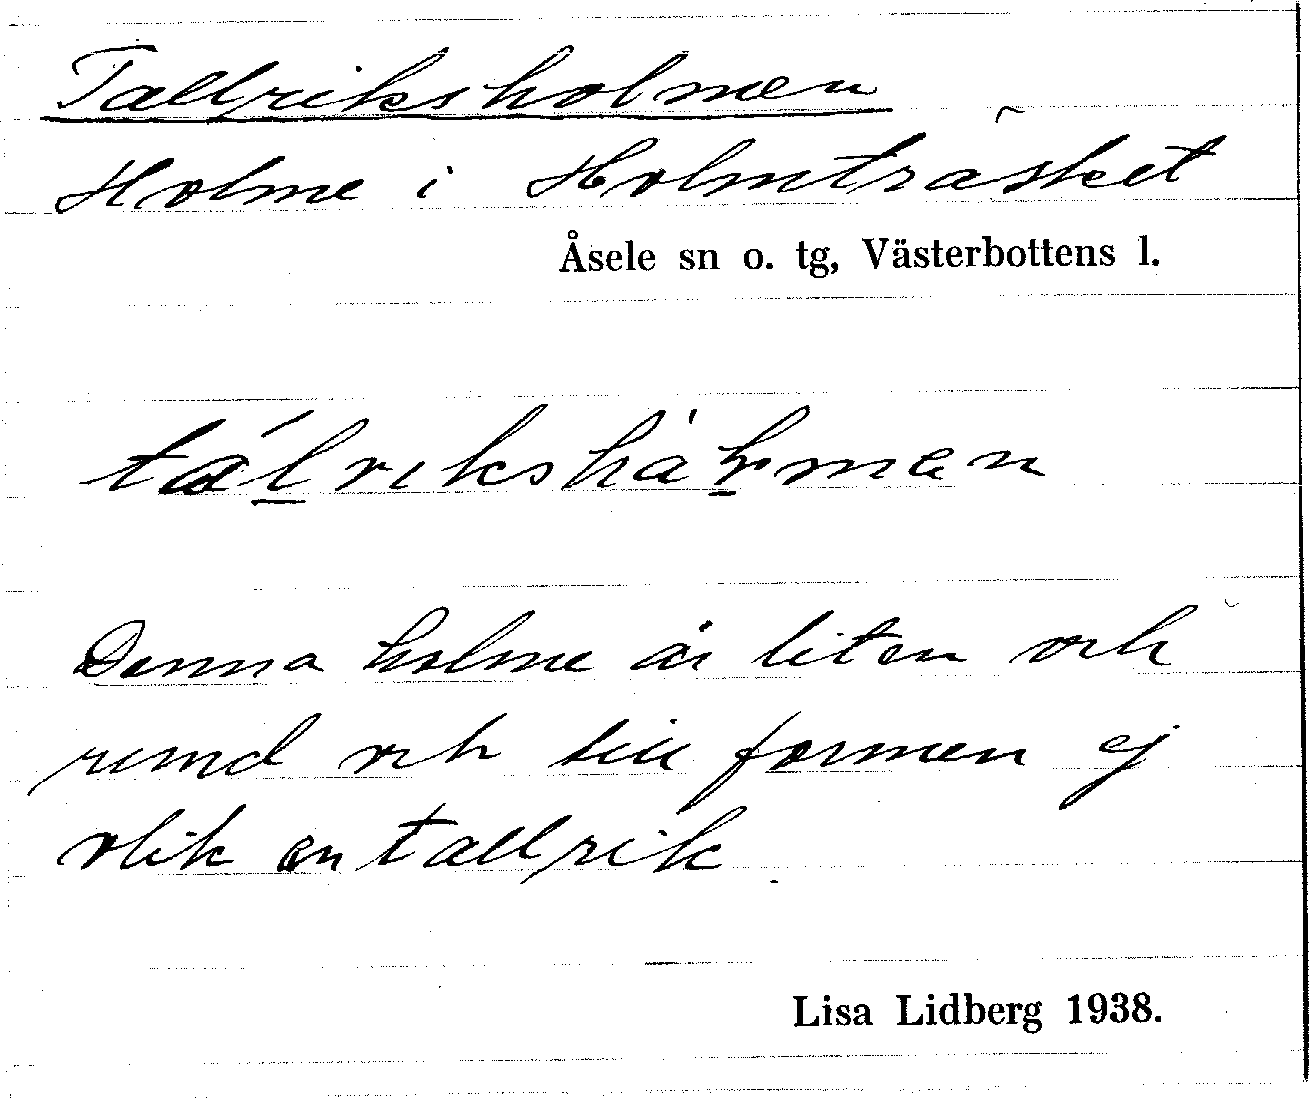 Tallriksholmen
Holme i Holmträsket
Åsele sn o. tg, Västerbottens l.
Denna holme är liten och
rund och till formen ej
olik en tallrik.
Lisa Lidberg 1938.